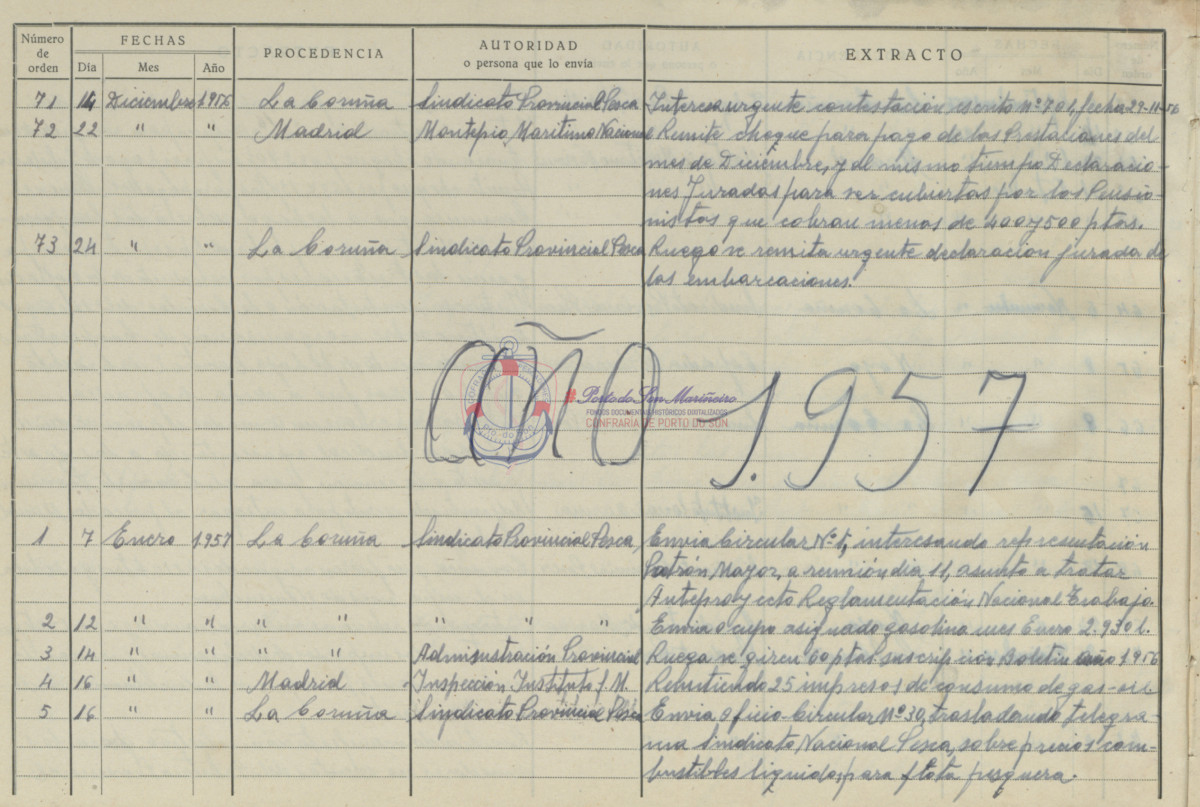 Número de orden FECHAS PROCEDENCIA AUTORIDAD o persona que lo envía EXTRACTO
Dia Mes Año
71 14 Diciembre 1.956 La Coruña Sindicato Provincial Pesca Interesa urgente contestación escrito Nº 701, fecha 29-11-56
72 22 " " Madrid Montepio Marítimo Nacional Remite cheque para pago de las Prestaciones del
mes de Diciembre, y al mismo tiempo Declaracio-
nes Juradas para ser cubiertas por los Pensio-
nistas que cobran menos de 400 y 500 ptas.
73 24 " " La Coruña Sindicato Provincial Pesca Ruego se remita urgente declaración jurada de
las embarcaciones.
año 1.957
Porto do Son Mariñeiro
FONDOS DOCUMENTAIS HISTÓRICOS DIXITALIZADOS
CONFRARÍA DE PORTO DO SON
1 7 Enero 1.957 La Coruña Sindicato Provincial Pesca Envia Circular Nº 1, interesando representación
Patrón Mayor, a reunión dia 11, asunto a tratar
Anteproyecto Reglamentación Nacional Trabajo.
2 12 " " " " " " " Envia cupo asignado gasolina mes Enero 2.930 l.
3 14 " " " " Administración Provincial Ruega se giren 60 ptas. suscripción Boletin año 1956
4 16 " " Madrid Inspección Instituto S. M. Remitiendo 25 impresos de consumo de gas-oil.
5 16 " " La Coruña Sindicato Provincial Pesca Envia oficio-Circular Nº 30, trasladando telegra-
ma Sindicato Nacional Pesca, sobre precios com-
bustibles liquidos, para flota pesquera.